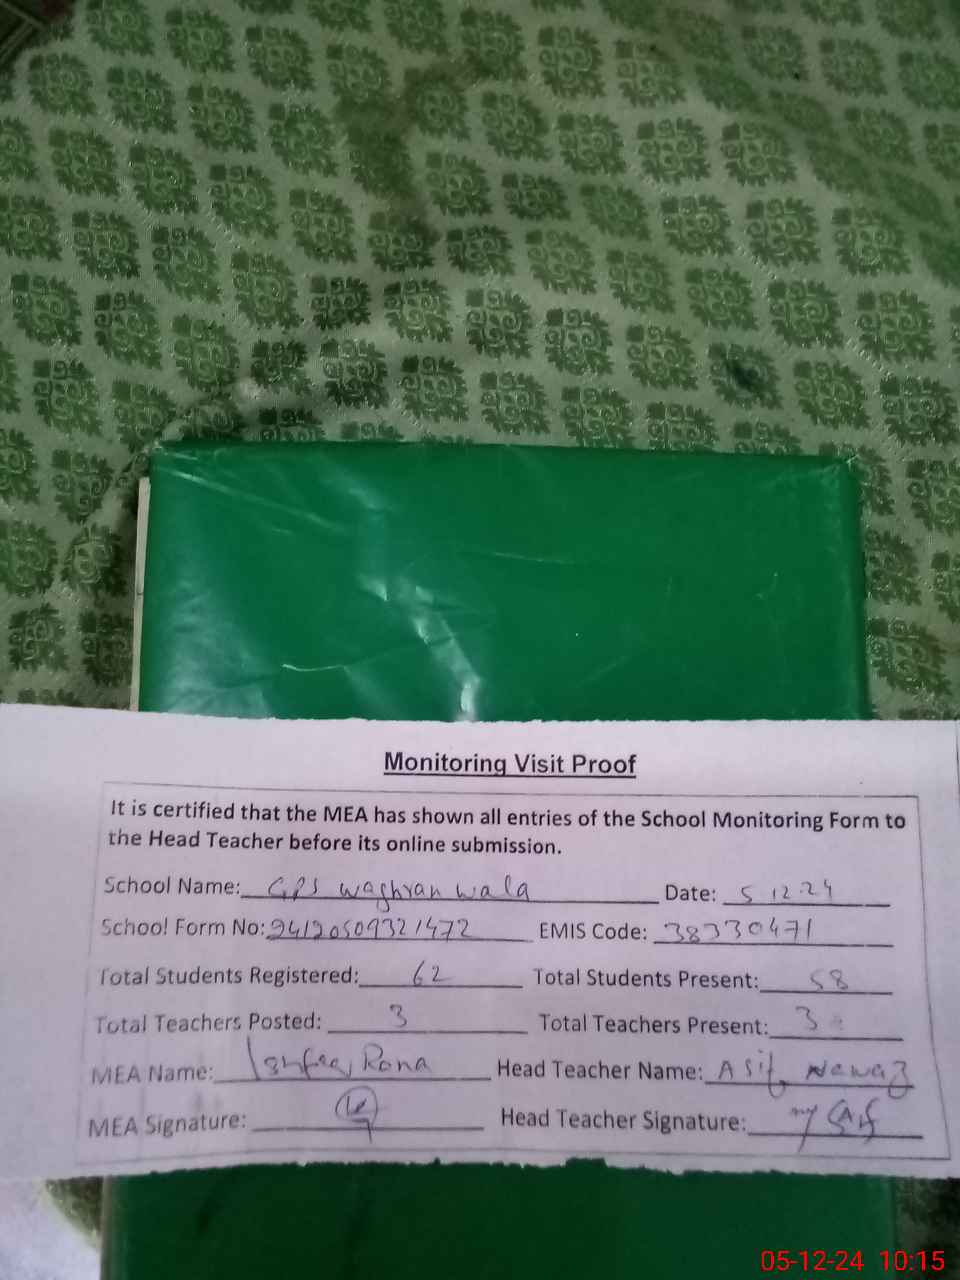 Monitoring Visit Proof
It is certified that the MEA has shown all entries of the School Monitoring Form to
the Head Teacher before its online submission.
School Name: GPS waghran wala Date: 5 12.24
School Form No: 24120509321472 EMIS Code: 38330471
Total Students Registered: 62 Total Students Present: 58
Total Teachers Posted: 3 Total Teachers Present: 3
MEA Name: Rana Head Teacher Name: Asif Nawaz
MEA Signature: Head Teacher Signature:
05-12-24 10:15